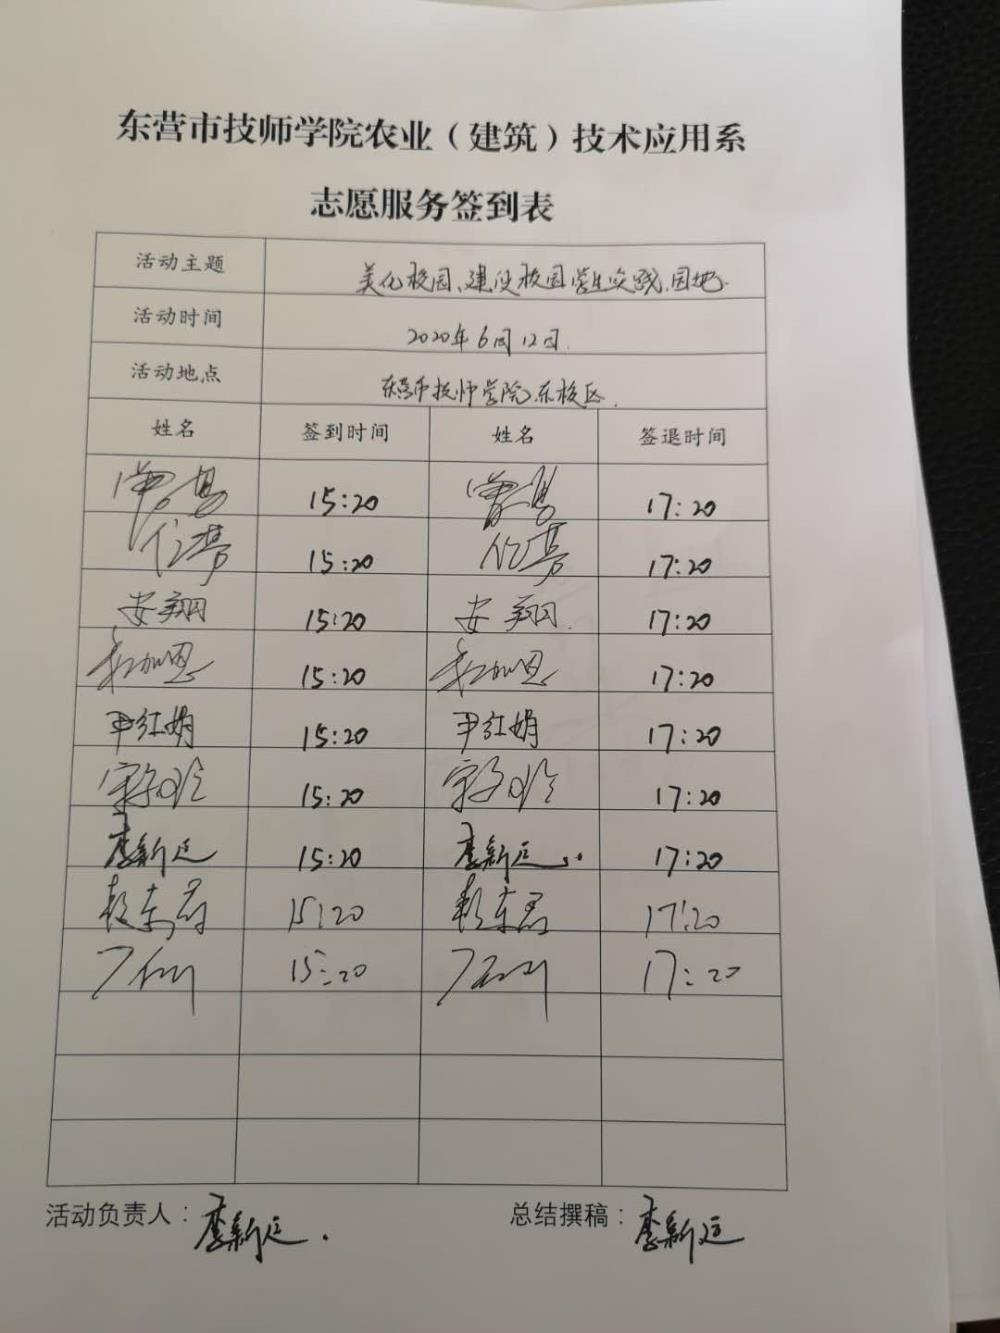 东营市技师学院农业（建筑）技术应用系
志愿服务签到表
活动主题 美化校园、建设校园学生实践园地.
活动时间 2020年6月12日.
活动地点 东营市技师学院东校区.
姓名 签到时间 姓名 签退时间
15:20 17:20
15:20 17:20
安翔 15:20 安翔. 17:20
15:20 17:20
尹红娟 15:20 尹红娟 17:20
15:20 17:20
李新廷 15:20 李新廷 17:20
15:20 17:20
15:20 17:20
活动负责人：李新廷. 总结撰稿：李新廷